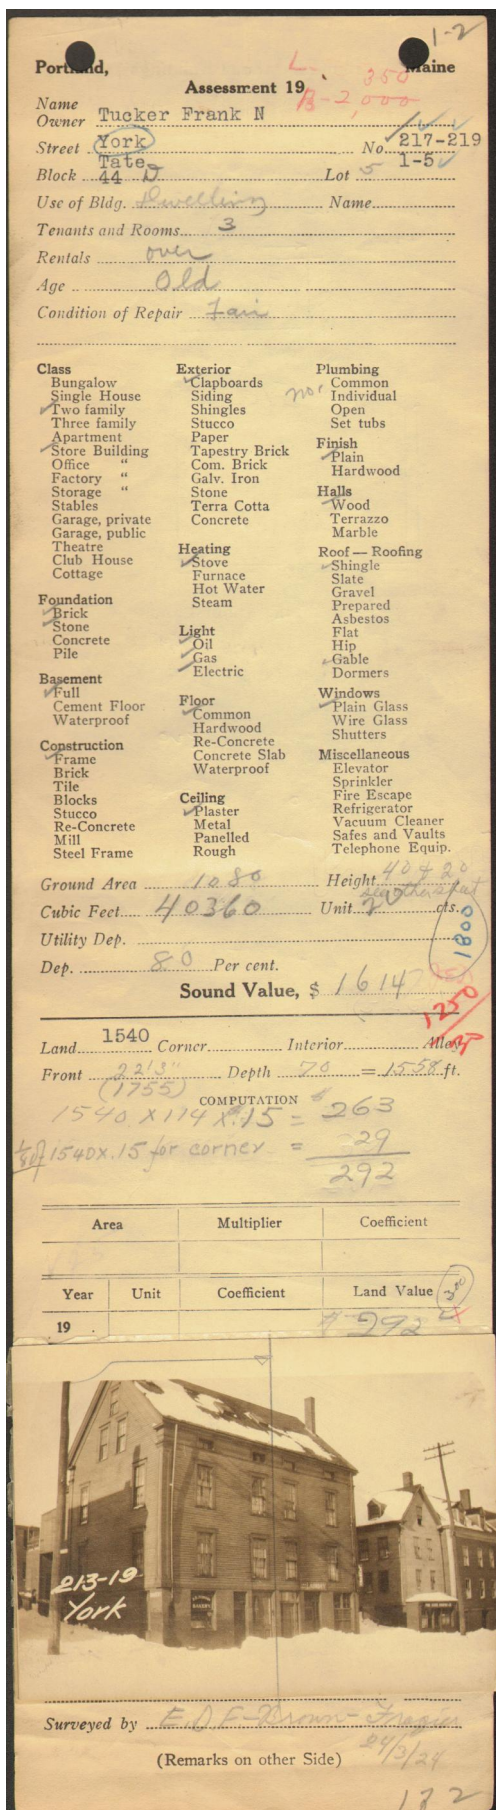 1-2
Portland, Maine
L- 350
Assessment 19
B-2,000
Name
Owner Tucker Frank N
Street York No. 217-219
Tate 1-5
Block 44 D Lot 5
Use of Bldg. Dwelling Name
Tenants and Rooms 3
Rentals over
Age Old
Condition of Repair Fair
Class
Bungalow
Single House
Two family
Three family
Apartment
Store Building
Office "
Factory "
Storage "
Stables
Garage, private
Garage, public
Theatre
Club House
Cottage
Foundation
Brick
Stone
Concrete
Pile
Basement
Full
Cement Floor
Waterproof
Construction
Frame
Brick
Tile
Blocks
Stucco
Re-Concrete
Mill
Steel Frame
Exterior
Clapboards
Siding
Shingles
Stucco
Paper
Tapestry Brick
Com. Brick
Galv. Iron
Stone
Terra Cotta
Concrete
Heating
Stove
Furnace
Hot Water
Steam
Light
Oil
Gas
Electric
Floor
Common
Hardwood
Re-Concrete
Concrete Slab
Waterproof
Ceiling
Plaster
Metal
Panelled
Rough
Plumbing
no. Common
Individual
Open
Set tubs
Finish
Plain
Hardwood
Halls
Wood
Terrazzo
Marble
Roof — Roofing
Shingle
Slate
Gravel
Prepared
Asbestos
Flat
Hip
Gable
Dormers
Windows
Plain Glass
Wire Glass
Shutters
Miscellaneous
Elevator
Sprinkler
Fire Escape
Refrigerator
Vacuum Cleaner
Safes and Vaults
Telephone Equip.
Ground Area 1080 Height 40 & 20
Cubic Feet 40360 Unit 20 cts.
Utility Dep.
1800
Dep. 80 Per cent.
Sound Value, $ 1614
1250
Land 1540 Corner Interior Alley
Front 22'3" Depth 70 = 1558 ft.
(1755)
COMPUTATION
1540 x 114 x .15 = 263
1540 x .15 for corner = 29
292
Area Multiplier Coefficient
Year Unit Coefficient Land Value
300
19 292
213-19
York
Surveyed by E.D.F-Brown-Frazier
24/3/24
(Remarks on other Side)
132